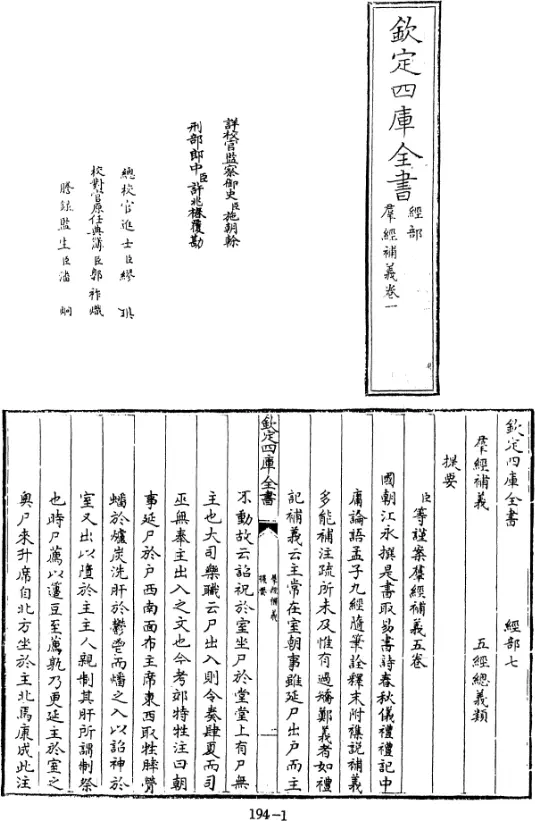 欽定四庫全書
經部
羣經補義卷一
詳校官監察御史臣施朝幹
刑部郎中臣許兆椿覆勘
總校官進士臣繆琪
校對官原任典簿臣郭祚熾
謄錄監生臣潘炯
欽定四庫全書
經部七
羣經補義
五經總義類
提要
臣等謹案羣經補義五卷
國朝江永撰是書取易書詩春秋儀禮禮記中
庸論語孟子九經隨筆詮釋末附襍說補義
多能補注疏所未及惟有過矯鄭義者如禮
記補義云主常在室朝事雖延尸出戶而主
欽定四庫全書
羣經補義
提要
一
不動故云詔祝於室坐尸於堂堂上有尸無
主也大司樂職云尸出入則令奏肆夏而司
巫無奏主出入之文也今考郊特牲注曰朝
事延尸於戶西南面布主席東面取牲膟膋
燔於爐炭洗肝於鬱鬯而燔之入以詔神於
室又出以墮於主主人親制其肝所謂制祭
也時尸薦以籩豆至薦孰乃更延主於室之
奧尸來升席自北方坐於主北焉康成此注
194-1